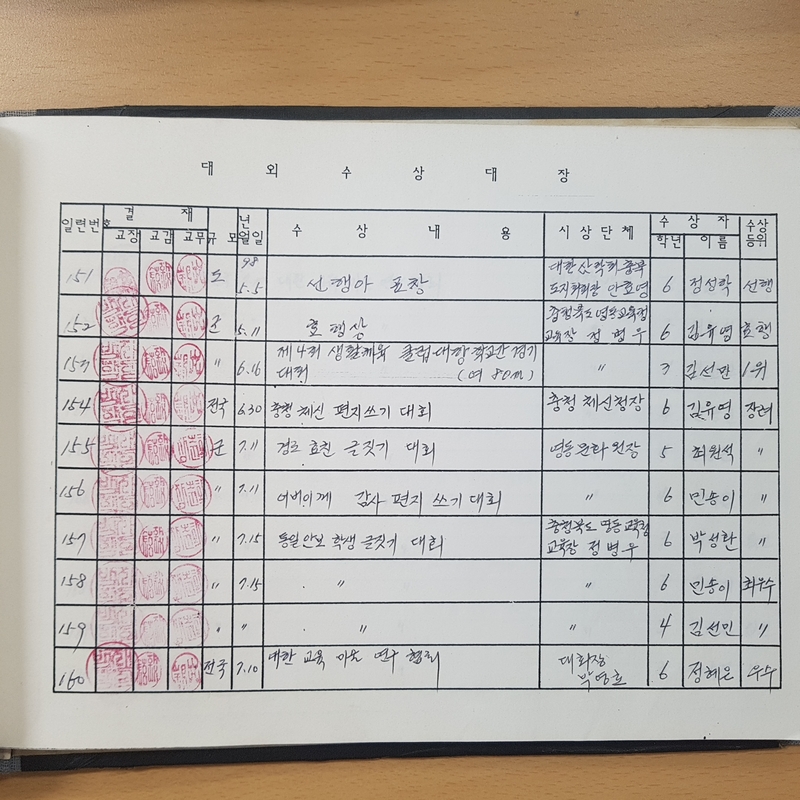 대 외 수 상 대 장
일련번호 결 재 규 모 년 월 일 수 상 내 용 시 상 단 체 수 상 자 수상 등위
교장 교감 교무 학년 이름
151 도 98 5.5 선행아 표창 대한산악회충북 6 정성학 선행
152 군 5.11 효행상 충청북도영동교육청 교육장 정병우 6 김유영 효행
153 〃 6.16 제4회 생활체육 클럽대항 학교간 경기 대회 (여 80m) 〃 3 김선만 1위
154 전국 6.30 충청 체신 편지쓰기 대회 충청 체신청장 6 김유영 장려
155 군 7.11 경로 효친 글짓기 대회 영동문화원장 5 최원석 〃
156 〃 7.11 어버이께 감사 편지 쓰기 대회 〃 6 민송이 〃
157 〃 7.15 통일안보 학생 글짓기 대회 충청북도 영동교육청 교육장 정병우 6 박성환 〃
158 〃 7.15 〃 〃 6 민송이 최우수
159 〃 〃 〃 〃 4 김선민 〃
160 전국 7.10 대한 교육 미술 연구 협회 대회장 박영호 6 정혜은 우수